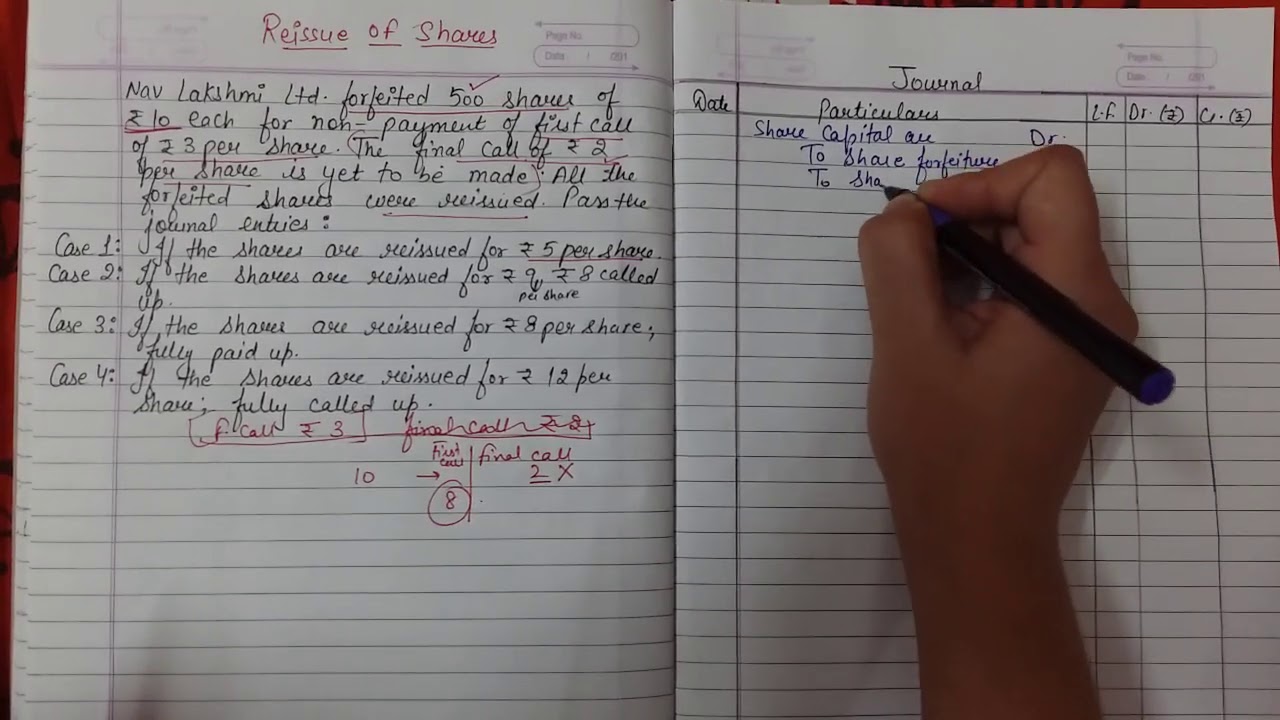 Reissue of Shares
Page No.
Date / 091
Nav Lakshmi Ltd. forfeited 500 shares of
₹10 each for non-payment of first call
of ₹3 per share. The final call of ₹2
per share is yet to be made. All the
forfeited shares were reissued. Pass the
journal entries:
Case 1: If the shares are reissued for ₹5 per share.
Case 2: If the shares are reissued for ₹9, ₹8 called
per share
up.
Case 3: If the shares are reissued for ₹8 per share;
fully paid up.
Case 4: If the shares are reissued for ₹12 per
share; fully called up.
f. call ₹3 final call ₹2
First call final call
10 → 2 X
8
Page No.
Date / 091
Journal
Date Particulars L.F. Dr. (₹) Cr. (₹)
Share Capital a/c Dr.
To Share forfeiture
To Sha